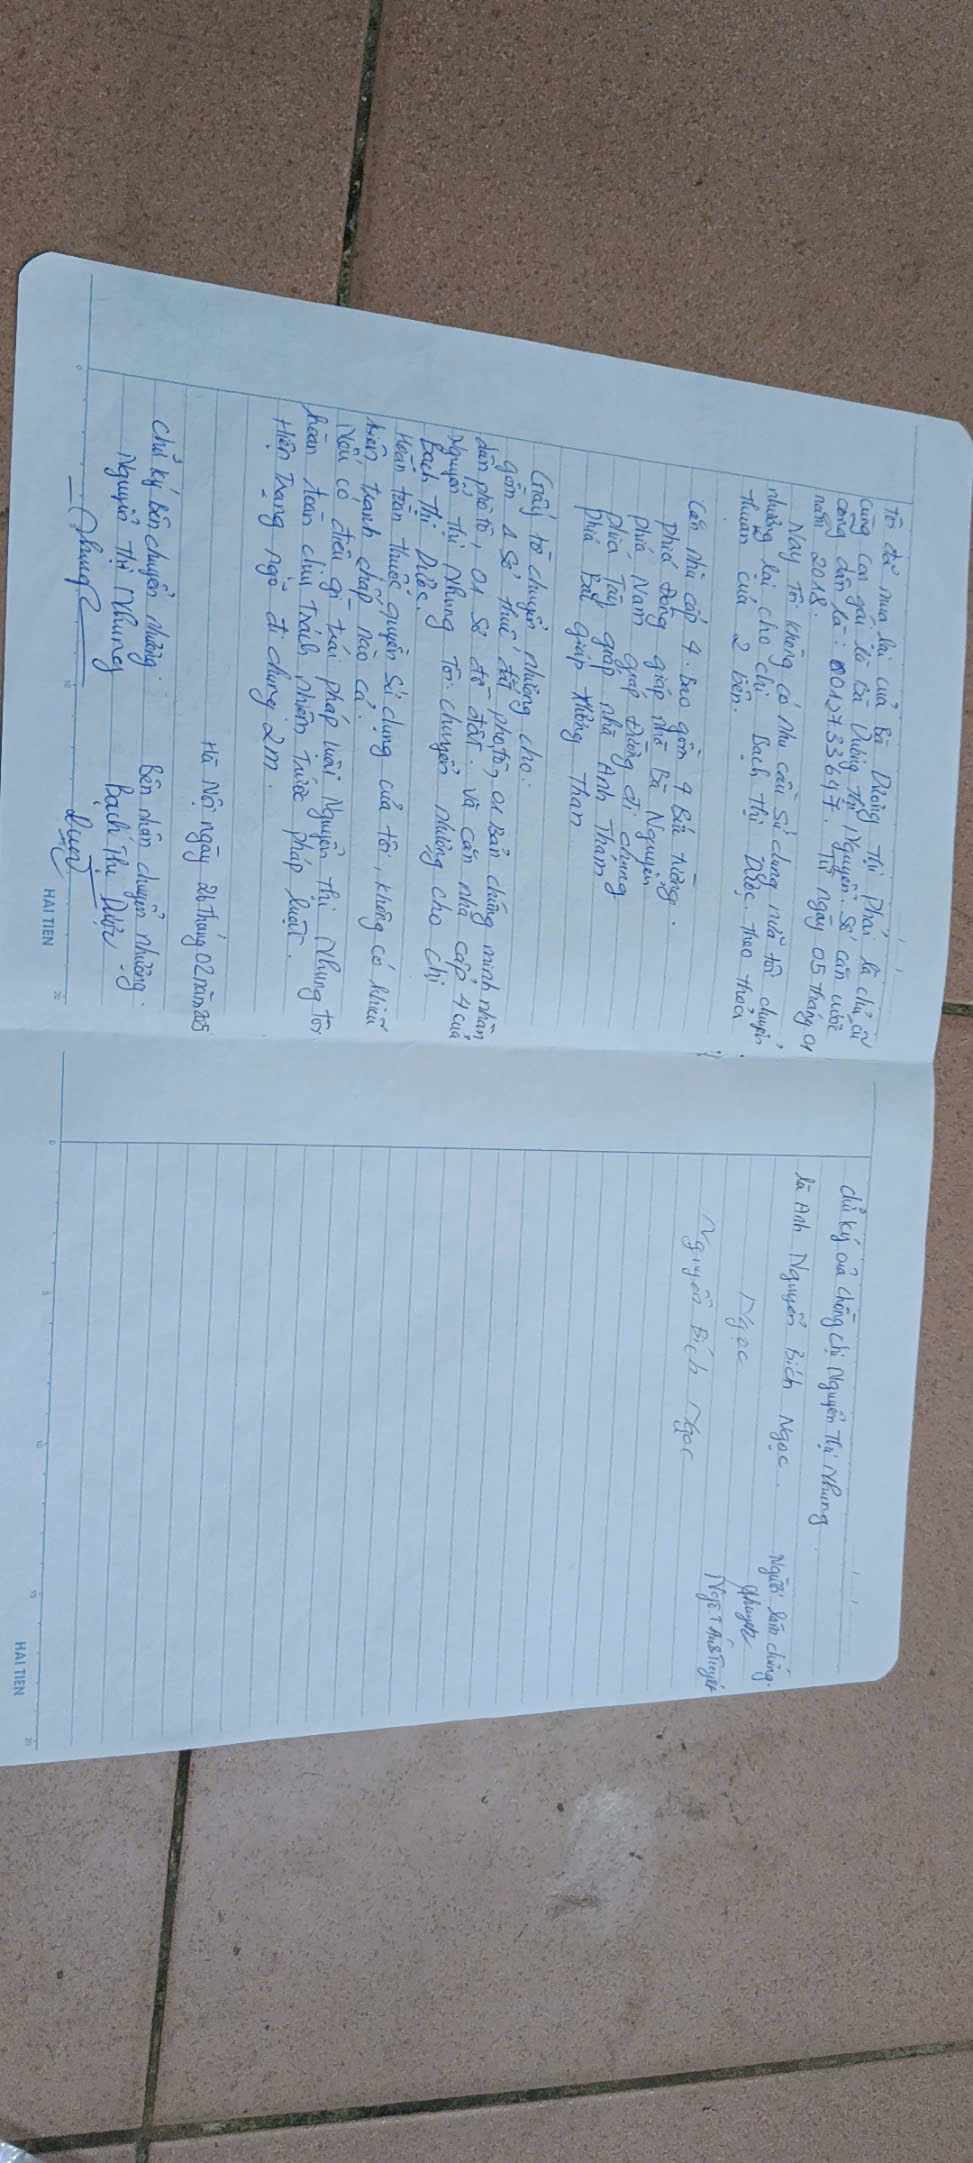 Tôi đã mua lại của Bà Dương Thị Phái là chủ cũ
cùng con gái là Bà Dương Thị Nguyên. Số căn cước
công dân là: 001273364
năm 2018. Từ ngày 05 tháng 01
Nay Tôi không có nhu cầu sử dụng nữa tôi chuyển
nhượng lại cho chị Bạch Thị Dược. theo thoả
thuận của 2 bên.
Căn nhà cấp 4. Bao gồm 4 Bức tường.
phía Đông giáp nhà Bà Nguyên
phía Nam giáp đường đi chung
phía Tây giáp nhà Anh Thám
phía Bắc giáp Xưởng Than
Giấy tờ chuyển nhượng cho.
gồm 1 Sổ thuế đất phôtô, 01 Bản chứng minh nhân
dân phô tô, 01 Sơ đồ đất. và căn nhà cấp 4 của
Nguyễn Thị Nhung Tôi. chuyển nhượng cho chị
Bạch Thị Dược.
Hoàn toàn thuộc quyền sử dụng của tôi, không có khiếu
kiện tranh chấp nào cả.
Nếu có điều gì trái pháp luật Nguyễn Thị Nhung tôi
hoàn toàn chịu trách nhiệm trước pháp luật.
Hiện Trạng ngõ đi chung 2m.
Hà Nội ngày 26 tháng 02 năm
Chữ ký bên chuyển nhượng. Bên nhận chuyển nhượng.
Nguyễn Thị Nhung Bạch Thị Dược
Nhung
HAI TIEN
chữ ký của chồng chị Nguyễn Thị Nhung
là Anh Nguyễn Bích Ngọc. Người làm chứng.
Ngọc
Nguyễn Bích Ngọc
HAI TIEN